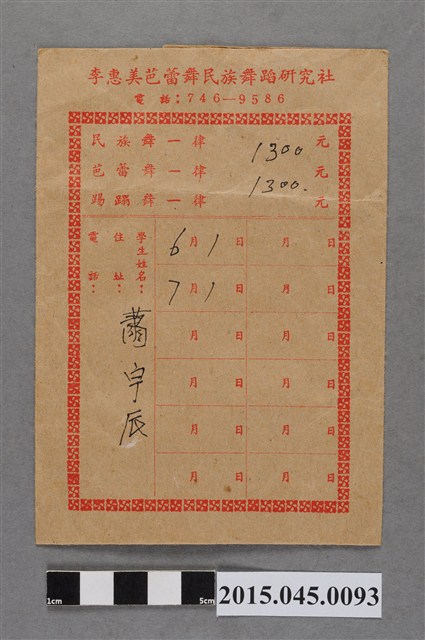 李惠美芭蕾舞民族舞蹈研究社
電話：746—9586
民族舞一律 1300 元
芭蕾舞一律 元
踢蹋舞一律 1300. 元
學生姓名：蕭宇辰
住址：
電話：
6月1日 月日
7月1日 月日
月日 月日
月日 月日
月日 月日
月日 月日
1cm 5cm
2015.045.0093